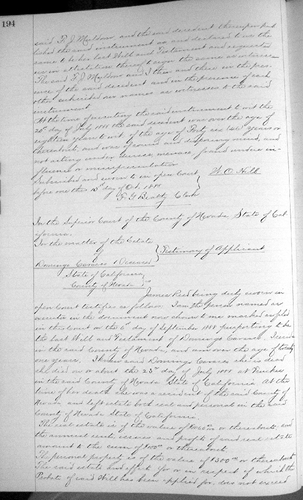 194
said R. J. Mayhew, and the said decedent thereupon pub
lished the said instrument as and declared it was the
same to be his last Will and Testament and requested
me in attestation thereof to sign the same as witness
The said R. J. Mayhew and I then and there in the pres-
ence of the said decedent and in the presence of each
other subscribed our names as witnesses to the said
instrument.
At the time of executing the said instrument to wit the
day of July 1888 the said decedent was over the age of
eighteen years to wit of the age of Forty six (46) years or
thereabout and was of sound and disposing mind, and
not acting under duress, menace, fraud undue in
fluence or misrepresentation
Subscribed and sworn to in open Court
before me this day of Oct. 1888 W. O. Hall
F. G. Beatty Clerk
In the Superior Court of the County of Nevada, State of Cal
ifornia.
In the matter of the Estate
of Testimony of Applicant
Domingo Deceased
State of California
County of Nevada ss
James duly sworn in
open Court testifies as follows: I am the person named as
executor in the document now shown to me marked as filed
in this Court on the day of September 1888 purporting to be
the last Will and Testament of Domingo I reside
in the said County of Nevada, and am over the age of twenty
one years. I knew said Domingo he is dead
he died on or about the 25th day of July 1888 at Truckee
in the said County of Nevada State of California. At the
time of his death he was a resident of the said County of
Nevada and left estate both real and personal in the said
County of Nevada State of California
The real estate is of the value of or thereabouts, and
the annual rents issues and profits of said real estate
amount to the sum of or thereabouts
The personal property is of the value of or thereabout
The said estate and effects for or in respect of which the
Probate of said Will has been applied for, does not exceed